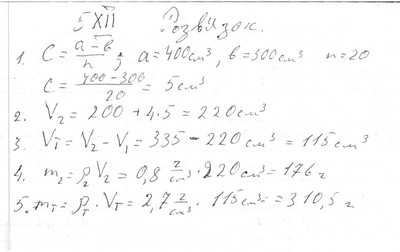 5 XII Розвʼязок.
1. C = a-b/n ; a = 400 см³, b = 300 см³ n = 20
C = 400-300/20 = 5 см³
2. V₂ = 200 + 4·5 = 220 см³
3. Vт = V₂ - V₁ = 335 - 220 см³ = 115 см³
4. m₂ = ρ₂ V₂ = 0,8 г/см³ · 220 см³ = 176 г
5. mт = ρт · Vт = 2,7 г/см³ · 115 см³ = 310,5 г